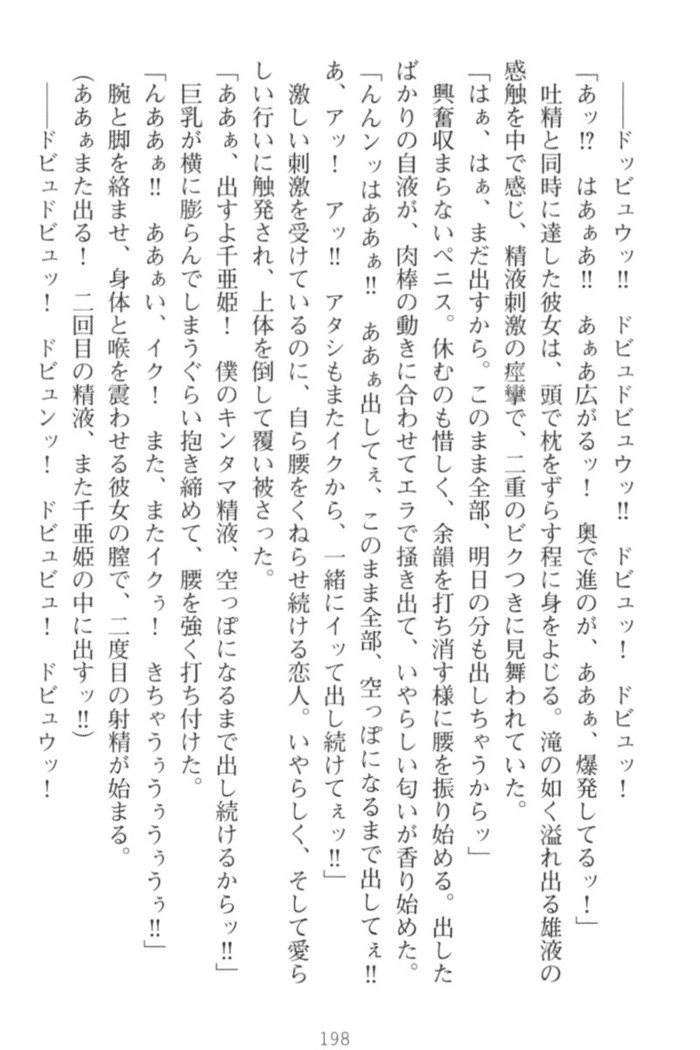 ――ドッビュウッ‼　ドビュドビュウッ‼　ドビュッ！　ドビュッ！
「あッ⁉　はあぁあ‼　あぁあ広がるッ！　奥で進のが、ああぁ、爆発してるッ！」
吐精と同時に達した彼女は、頭で枕をずらす程に身をよじる。滝の如く溢れ出る雄液の
感触を中で感じ、精液刺激の痙攣で、二重のビクつきに見舞われていた。
「はぁ、はぁ、まだ出すから。このまま全部、明日の分も出しちゃうからッ」
興奮収まらないペニス。休むのも惜しく、余韻を打ち消す様に腰を振り始める。出した
ばかりの自液が、肉棒の動きに合わせてエラで掻き出て、いやらしい匂いが香り始めた。
「んんンッはああぁ‼　ああぁ出してぇ、このまま全部、空っぽになるまで出してぇ‼
あ、アッ！　アッ‼　アタシもまたイクから、一緒にイッて出し続けてぇッ‼」
激しい刺激を受けているのに、自ら腰をくねらせ続ける恋人。いやらしく、そして愛ら
しい行いに触発され、上体を倒して覆い被さった。
「ああぁ、出すよ千亜姫！　僕のキンタマ精液、空っぽになるまで出し続けるからッ‼」
巨乳が横に膨らんでしまうぐらい抱き締めて、腰を強く打ち付けた。
「んああぁ‼　ああぁい、イク！　また、またイクぅ！　きちゃうぅうぅうぅうぅ‼」
腕と脚を絡ませ、身体と喉を震わせる彼女の膣で、二度目の射精が始まる。
（ああぁまた出る！　二回目の精液、また千亜姫の中に出すッ‼）
――ドビュドビュッ！　ドビュンッ！　ドビュビュ！　ドビュウッ！
198